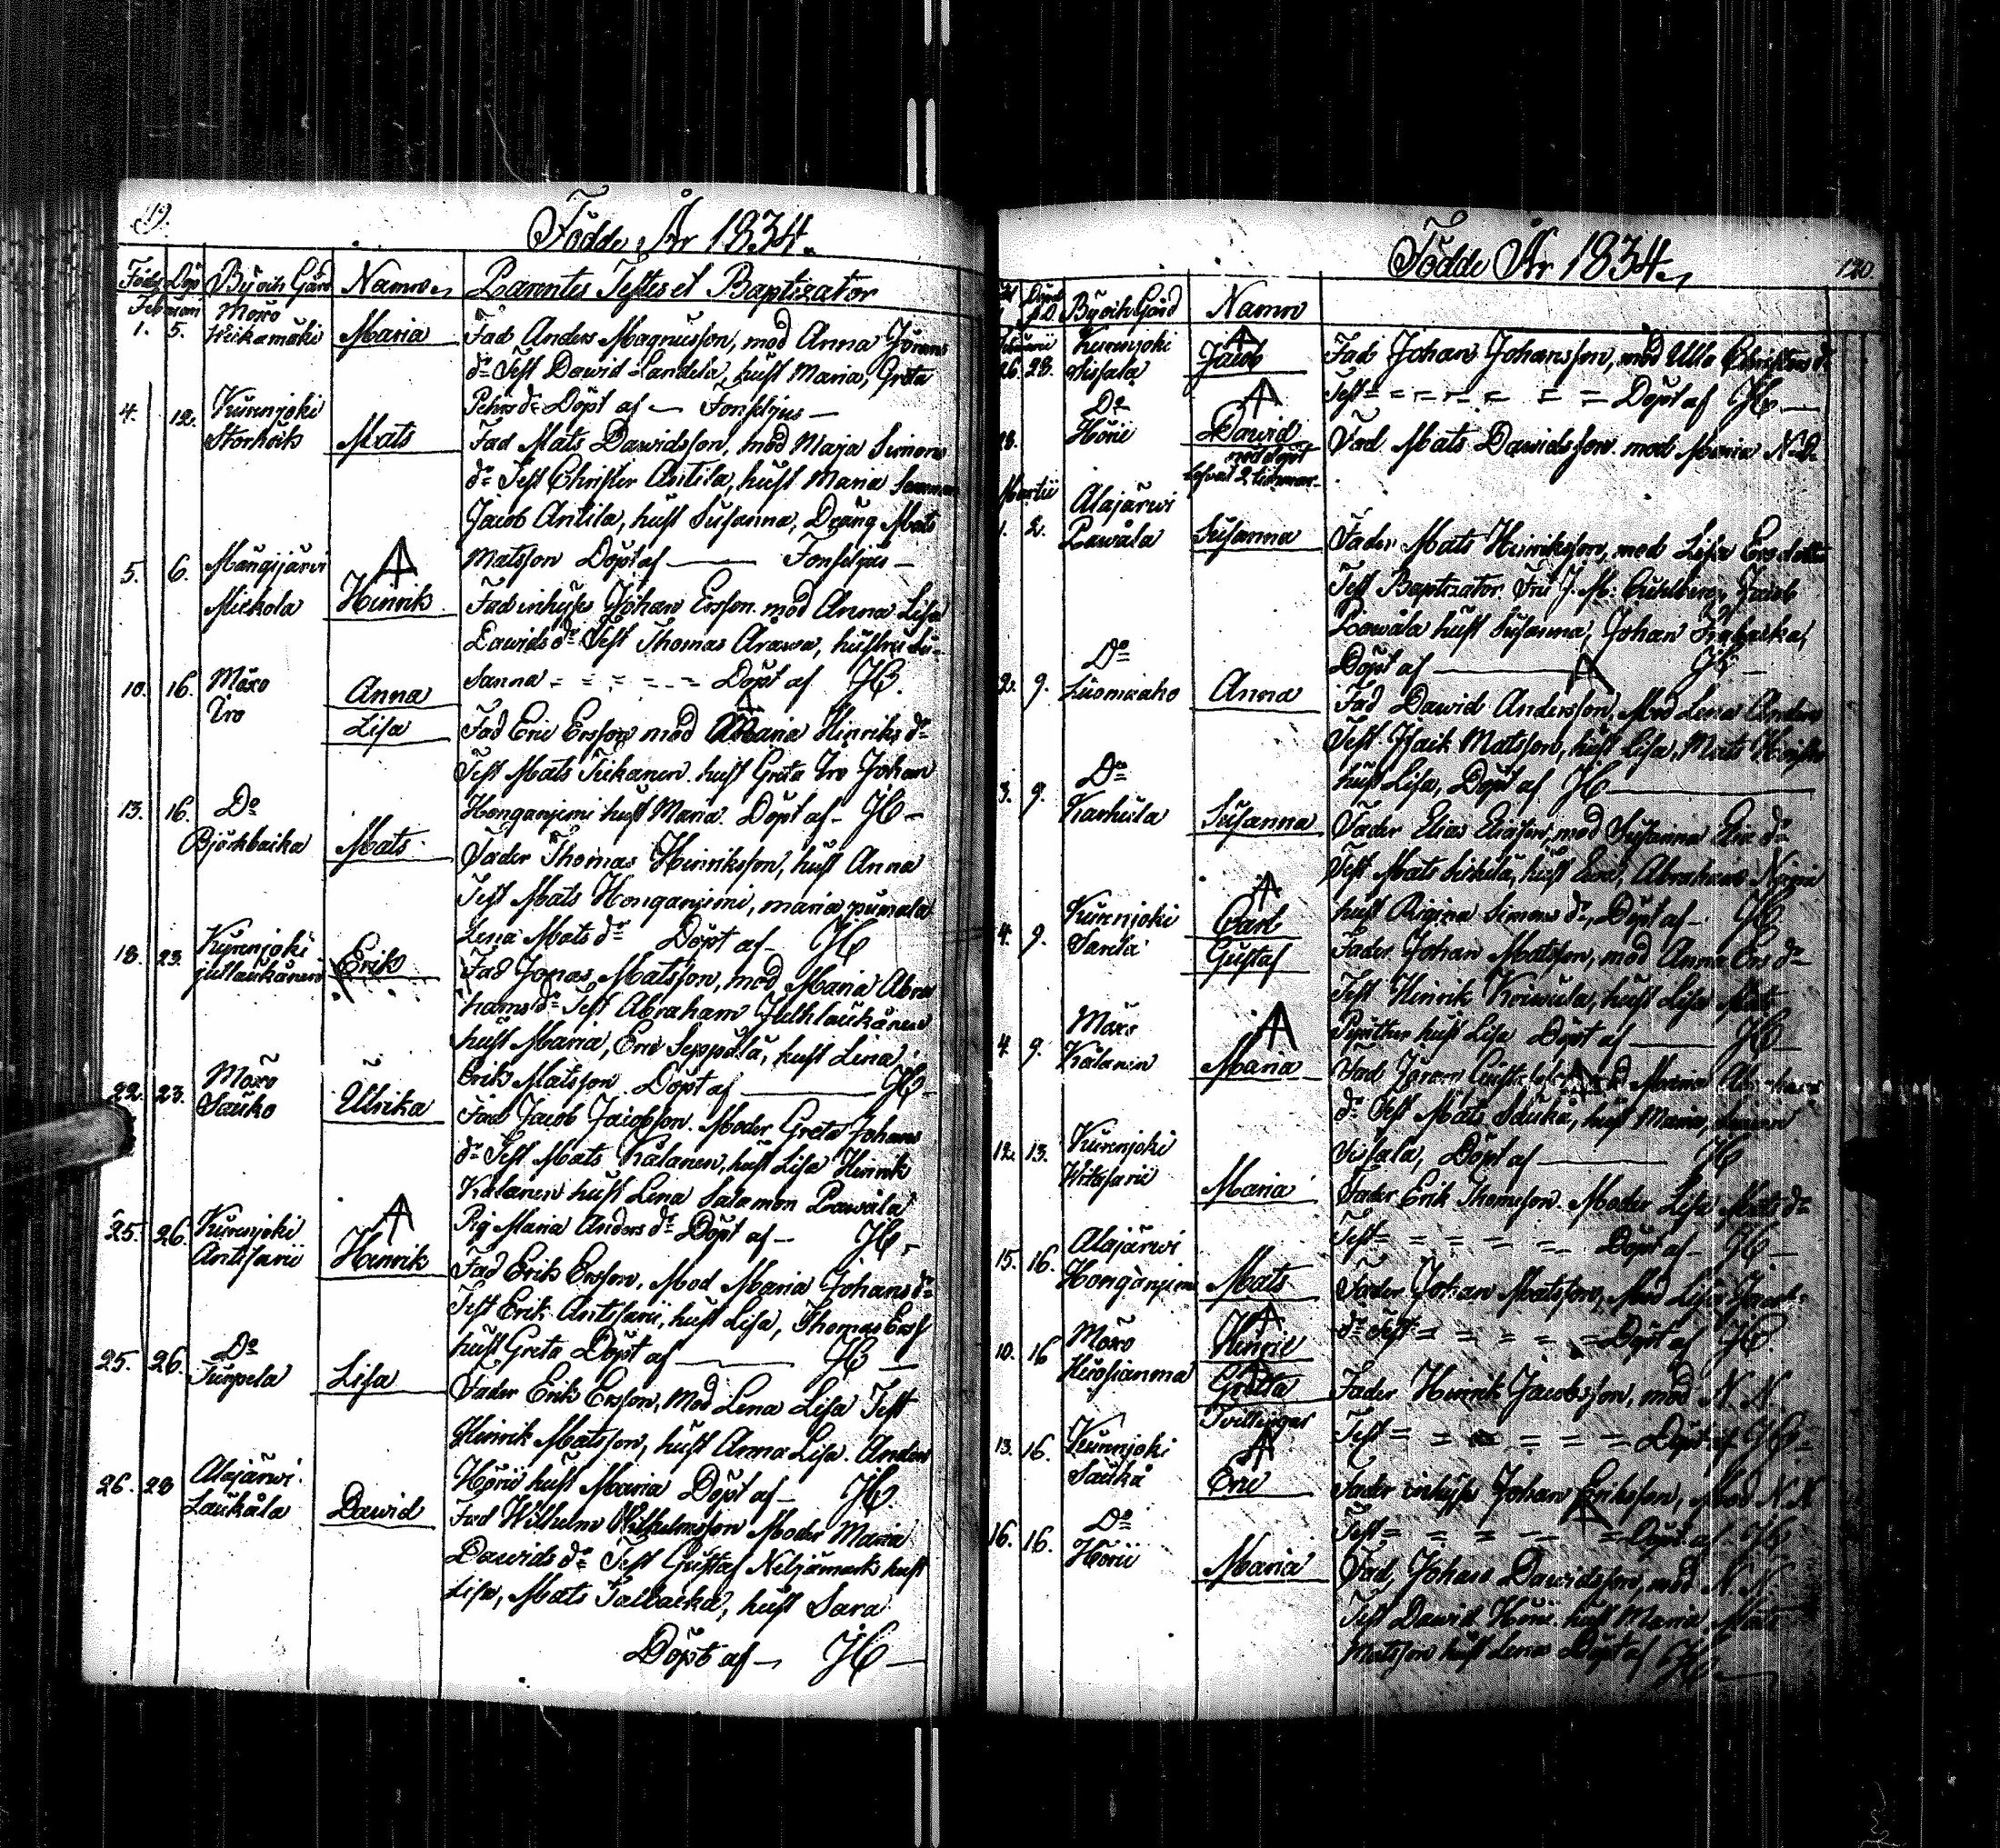 19.
Födde År 1834.
Född Döp By och Gård Namn Parentes Testes et Baptizator
Februari Moxo
1. 5. Maria Fad Anders Magnusson, mod Anna Jörans
dr Test Dawid Landela, hust Maria, Greta
Pehrs dr Döpt af — Fonselius —
4. 12. Kurenjoki
Storhoik Mats Fad Mats Dawidsson, mod Maja Simons
dr Test Christer Antila, hust Maria
Jacob Antila, hust Susanna, Dräng Mats
Matsson Döpt af — Fonselius —
5. 6. Mängijärvi
Mickola Hinrik Fad inhyse Johan Ersson mod Anna Lisa
Dawids dr Test Thomas Arawa, hustru Su-
sanna = = = = = Döpt af JH.
10. 16. Moxo
Iro Anna
Lisa Fad Eric Ersson mod Maria Hinriks dr
Test Mats Tiekanen hust Greta Iro Johan
Honganjemi hust Maria. Döpt af — JH —
13. 16. Do
Björkbacka Mats Fader Thomas Hinriksson, hust Anna
Test Mats Honganjemi, maria pumala
Lena Mats dr Döpt af — JH
18. 23. Kurenjoki
Erik Fad Jonas Matsson, mod Maria Abra
hams dr Test Abraham Julhlaukånen
hust Maria, Eric Seppälä, hust Lena,
Erik Matsson Döpt af — JH —
22. 23. Moxo
Sauko Ulrika Fad Jacob Jacobsson. Moder Greta Johans
dr Test Mats Kalanen, hust Lisa Hinrik
Kalanen hust Lena Salamon Pawala
Pig Maria Anders dr Döpt af — JH —
25. 26. Kurenjoki
Antisarii Henrik Fad Erik Ersson, Mod Maria Johans dr
Test Erik Antisarii, hust Lisa, Thomas Ers
hust Greta Döpt af — JH —
25. 26. Do
Turpela Lisa Fader Erik Ersson, Mod Lena Lisa Test
Hinrik Matsson, hust Anna Lisa. Anders
Hörii hust Maria Döpt af — JH
26. 28 Alajärwi
Laukala Dawid Fad Wilhelm Wilhelmsson Moder Maria
Dawids dr Test Gustaf Neljämark hust
Lisa, Mats Tallbacka, hust Sara
Döpt af — JH —
Födde År 1834. 120.
By och Gård Namn
Februarii Kurenjoki
26. 28. Sissala Jacob Fad Johan Johansson, mod Ulla Christers dr
Test = = = = = = Döpt af JH —
Do
28. Hörii Dawid Fad Mats Dawidsson mod Maria N.d.
nöddöpt
lefvat 2 timmar
Martii Alajärwi
1. 2. Pawala Susanna Fader Mats Hinriksson, mod Lisa Ersdotter
Test Baptizator Fru J. M. Jacob
Pawala hust Susanna, Johan
Döpt af — JH —
Do
2. 9. Luomaaho Anna Fad Dawid Andersson, Mod Lena Anders
Test Isack Matsson, hust Lisa, Mats
hust Lisa, Döpt af JH —
Do
3. 9. Karhula Susanna Fader Elias Eliasson, mod Susanna Eric dr
Test Mats hust Abraham
hust Rigina Simons dr, Döpt af — JH
4. 9. Kurenjoki
Sarila Carl
Gustaf Fader Johan Matsson, mod Anna Ers dr
Test Hinrik hust Lisa Mats
hust Lisa Döpt af — JH —
4. 9. Moxo
Kalanen Maria Fad Jöran mod Maria Abrahams
dr Test Mats Sauka, hust Maria,
Sissala, Döpt af — JH
12. 13. Kurenjoki
Witasarii Maria Fader Erik Thomsson. Moder Lisa Mats dr
Test = = = = = Döpt af — JH —
15. 16. Alajärwi
Honganjemi Mats Fader Johan Matsson, Mod Lisa Jacobs
dr Test = = = = = Döpt af JH.
10. 16 Moxo
Hinric
Greta
Tvillingar Fader Henrik Jacobsson, mod N. N.
Test = = = = = = Döpt af JH —
13. 16. Kurenjoki
Sauka Eric Fader inhyse Johan Eriksson, Mod N. N
Test = = = = = Döpt af JH
16. 16. Do
Hörii Maria Fad, Johan Dawidsson, mod N. N.
Test Dawid Hörii hust Maria, Mats
Matsson hust Lena Döpt af JH —